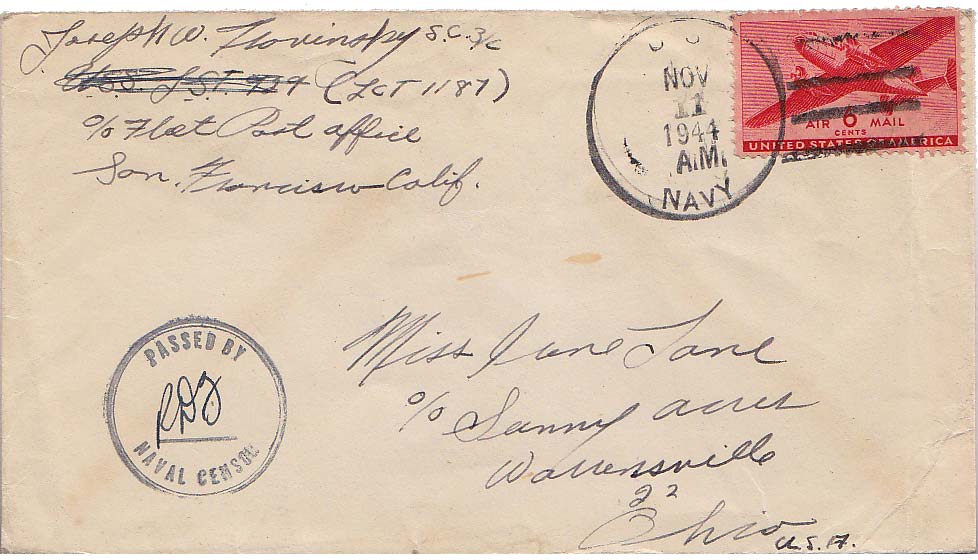 Joseph W. Trovinsky S.C. 3/c
U.S.S. LST 774 (LCT 1187)
c/o Fleet Post office
San. Francisco Calif.
NOV
11
1944
A.M.
NAVY
AIR 6 MAIL
CENTS
UNITED STATES OF AMERICA
PASSED BY
RDZ
NAVAL CENSOR
Miss June Lane
c/o Sunny acres
Warrensville
22
Ohio
U.S.A.